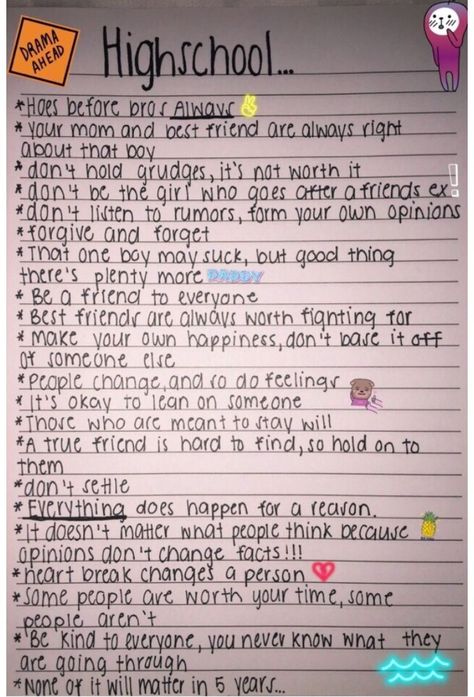 DRAMA
AHEAD
Highschool...
*Hoes before bros Always
*your mom and best friend are always right
about that boy
*don't hold grudges, it's not worth it
*don't be the girl who goes after a friends ex!
*don't listen to rumors, form your own opinions
*forgive and forget
*That one boy may suck, but good thing
there's plenty more DADDY
* Be a friend to everyone
* Best friends are always worth fighting for
* Make your own happiness, don't base it off
of someone else
*People change, and so do feelings
* It's okay to lean on someone
*Those who are meant to stay will
*A true friend is hard to find, so hold on to
them
*don't settle
* Everything does happen for a reason.
*It doesn't matter what people think because
opinions don't change facts!!!
*heart break changes a person
*Some people are worth your time, some
people aren't
*Be kind to everyone, you never know what they
are going through
*None of it will matter in 5 years...